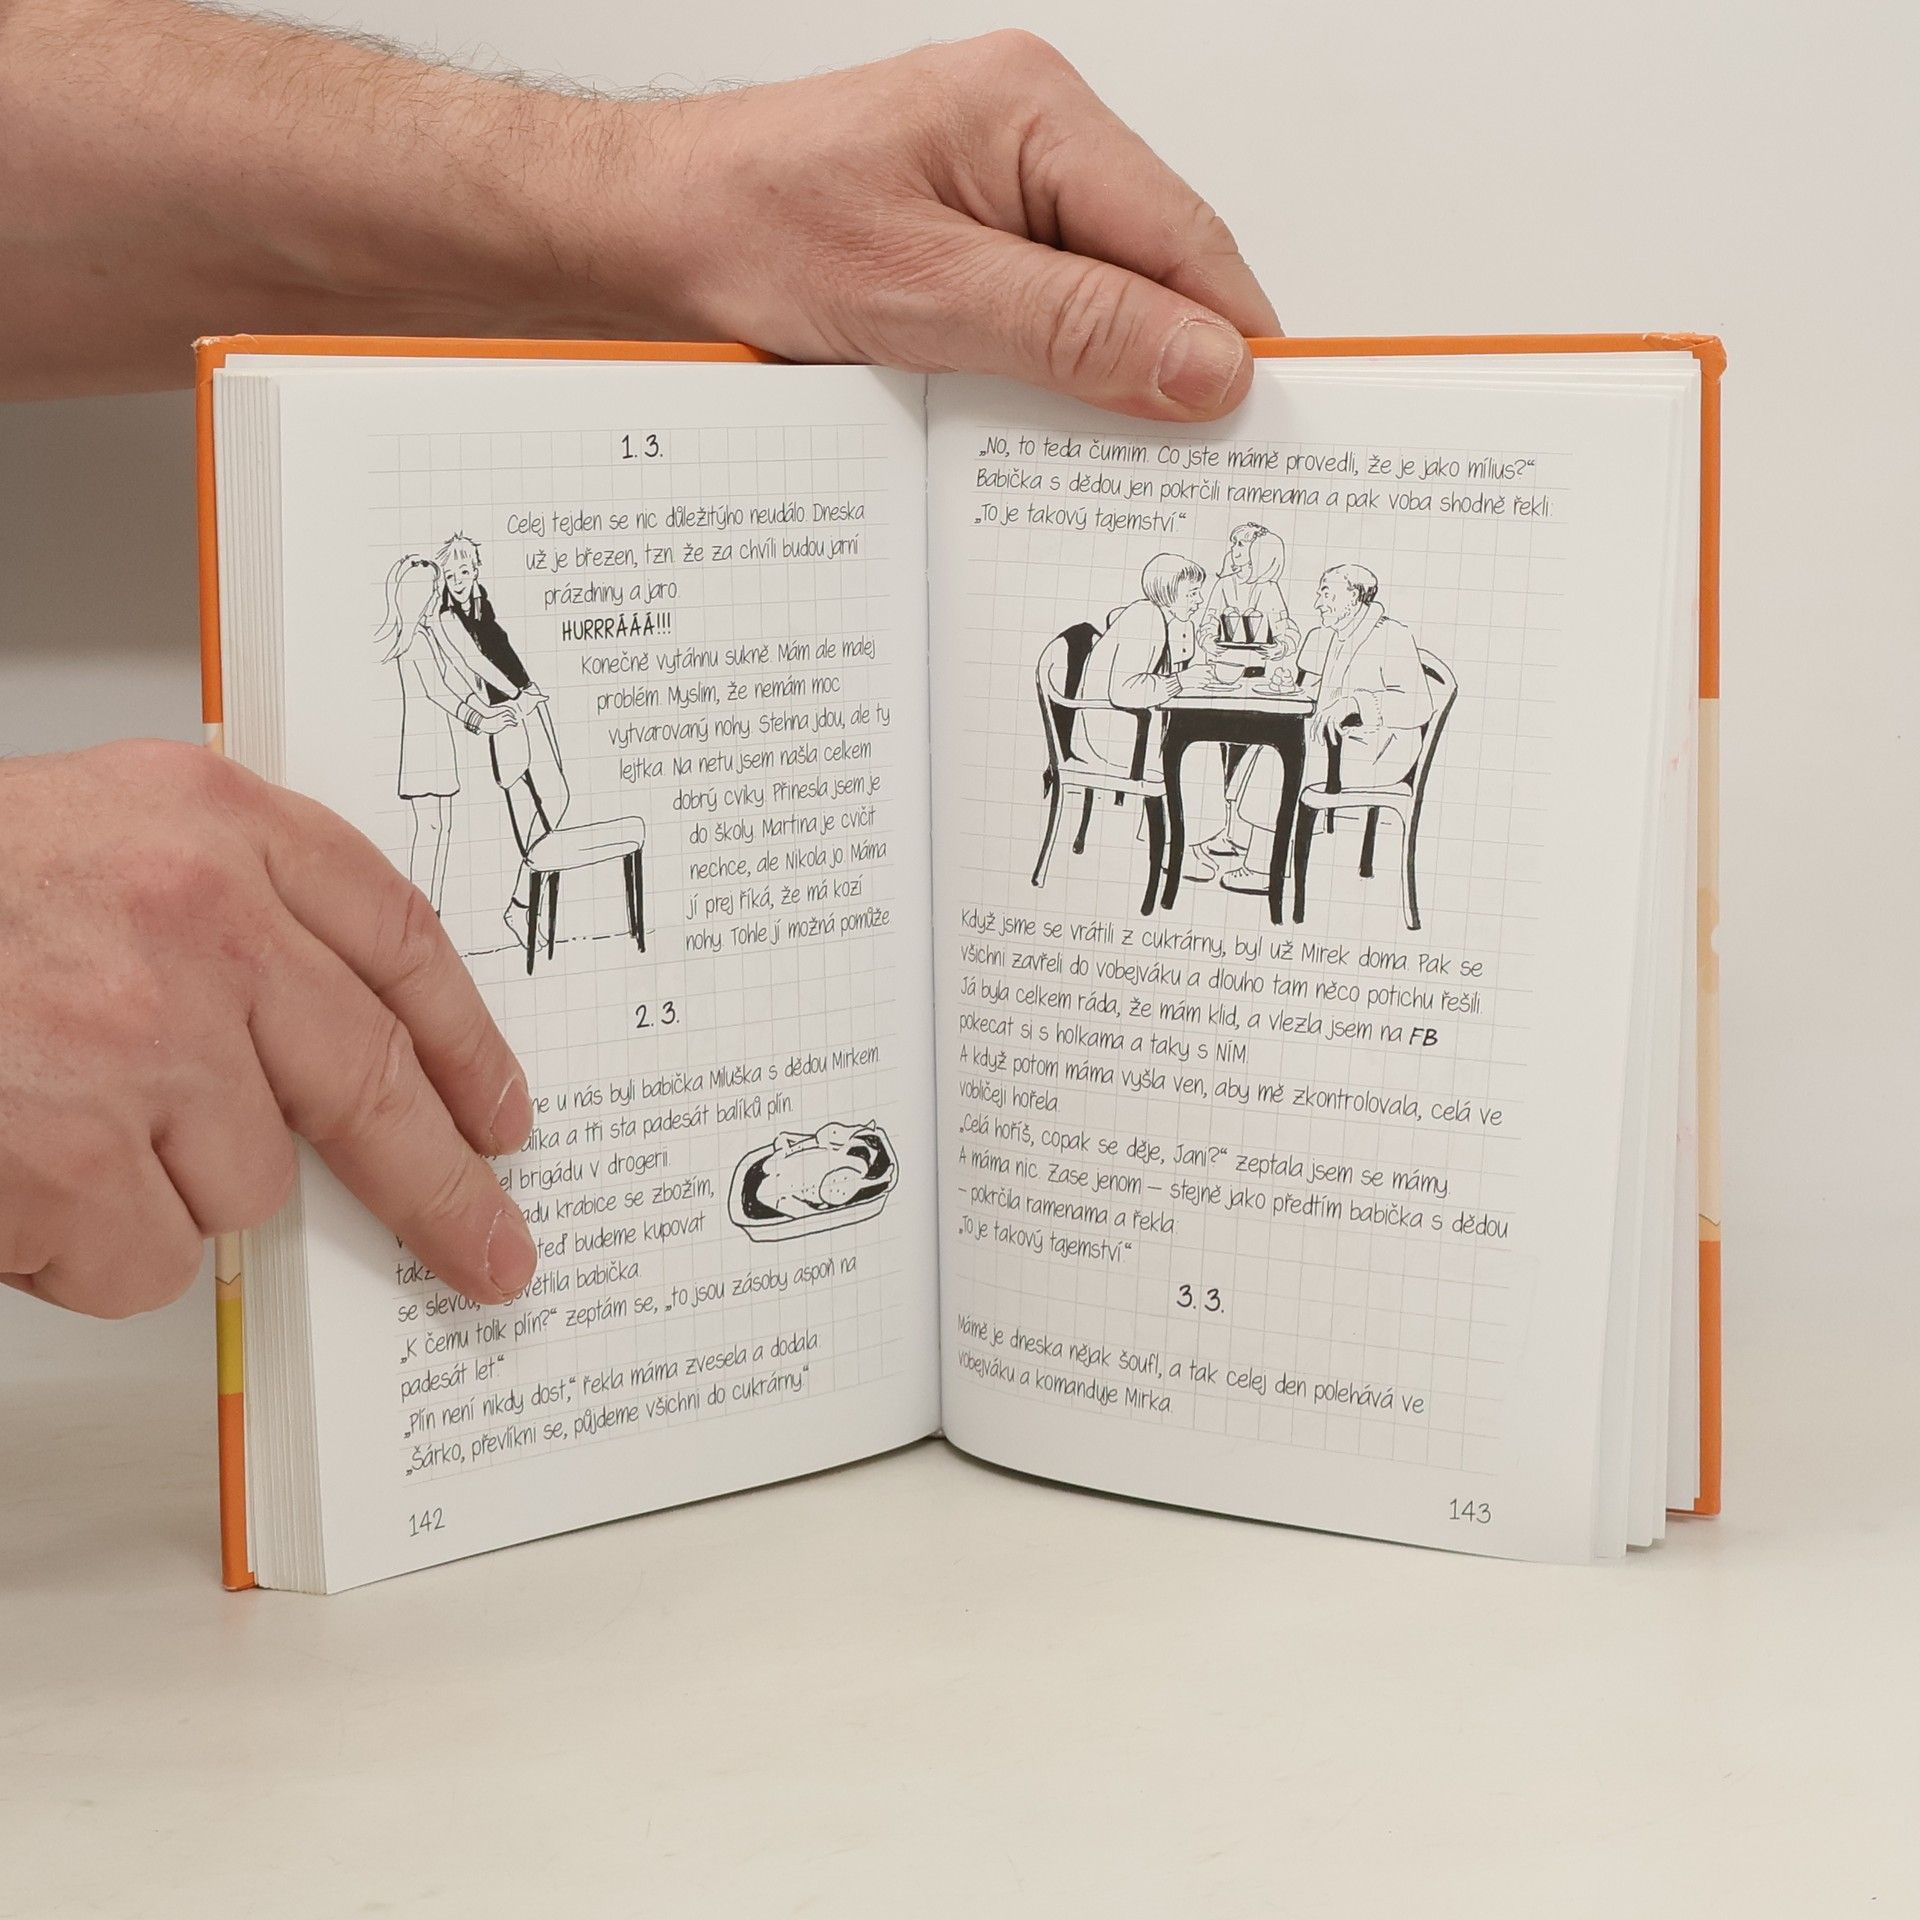 1. 3.
Celej tejden se nic důležitýho neudálo. Dneska
už je březen, tzn. že za chvíli budou jarní
prázdniny a jaro.
HURRRÁÁÁ!!!
Konečně vytáhnu sukně. Mám ale malej
problém. Myslim, že nemám moc
vytvarovaný nohy. Stehna jdou, ale ty
lejtka. Na netu jsem našla celkem
dobrý cviky. Přinesla jsem je
do školy. Martina je cvičit
nechce, ale Nikola jo. Máma
jí prej říká, že má kozí
nohy. Tohle jí možná pomůže.
2. 3.
u nás byli babička Miluška s dědou Mirkem.
a tři sta padesát balíků plín.
brigádu v drogerii.
krabice se zbožím,
teď budeme kupovat
se slevou, babička.
„K čemu tolik plín?“ zeptám se, „to jsou zásoby aspoň na
padesát let.“
„Plín není nikdy dost,“ řekla máma zvesela a dodala:
„Šárko, převlíkni se, půjdeme všichni do cukrárny.“
142
„No, to teda čumim. Co jste mámě provedli, že je jako mílius?“
Babička s dědou jen pokrčili ramenama a pak voba shodně řekli:
„To je takový tajemství.“
Když jsme se vrátili z cukrárny, byl už Mirek doma. Pak se
všichni zavřeli do vobejváku a dlouho tam něco potichu řešili.
Já byla celkem ráda, že mám klid, a vlezla jsem na FB
pokecat si s holkama a taky s NÍM.
A když potom máma vyšla ven, aby mě zkontrolovala, celá ve
vobličeji hořela.
„Celá hoříš, copak se děje, Jani?“ zeptala jsem se mámy.
A máma nic. Zase jenom – stejně jako předtím babička s dědou
– pokrčila ramenama a řekla:
„To je takový tajemství.“
3. 3.
Mámě je dneska nějak šoufl, a tak celej den polehává ve
vobejváku a komanduje Mirka.
143